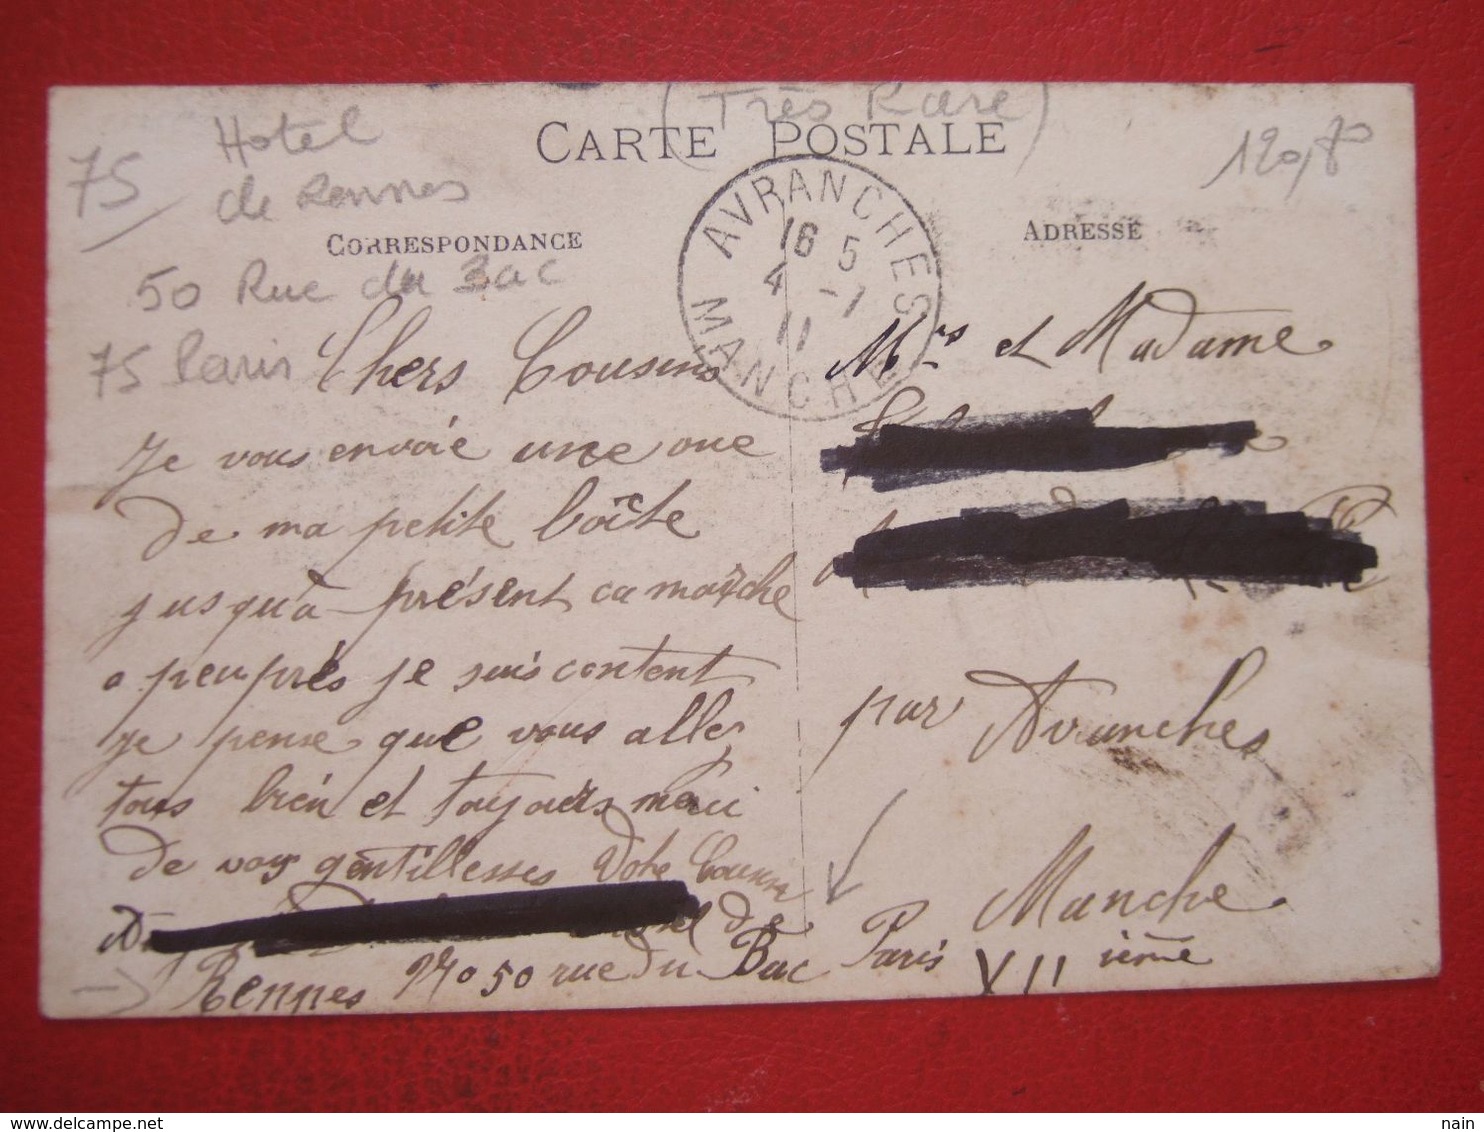 (Très Rare)
CARTE POSTALE
120,80
75
Hotel
de Rennes
CORRESPONDANCE
50 Rue du Bac
75 Paris
AVRANCHES
16 5
4 -7
11
MANCHE
ADRESSE
Chers Cousins
Je vous envoie une vue
de ma petite boîte
jusqu'à présent ca marche
a peu près je suis content
je pense que vous allez
tous bien et toujours merci
de vos gentillesses Votre Cousin
Hotel de
Rennes No 50 rue du Bac Paris VII ième
Mrs et Madame
par Avranches
Manche
delcampe.net
nain